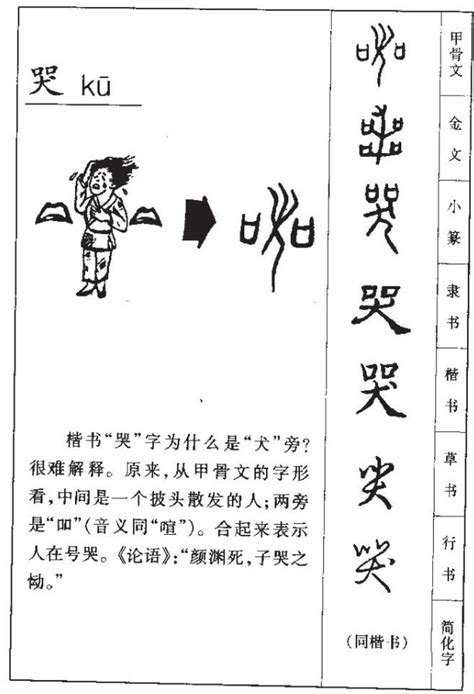 哭 kū
楷书“哭”字为什么是“犬”旁？
很难解释。原来，从甲骨文的字形
看，中间是一个披头散发的人；两旁
是“吅”（音义同“喧”）。合起来表示
人在号哭。《论语》：“颜渊死，子哭之
恸。”
哭
哭
哭
哭
哭
哭
哭
（同楷书）
甲骨文
金文
小篆
隶书
楷书
草书
行书
简化字